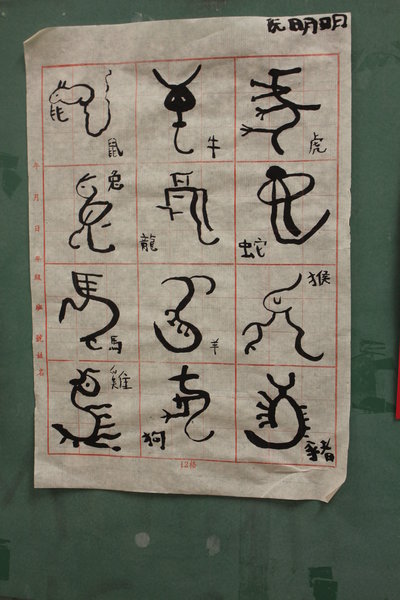 鼠 牛 虎
兔 龍 蛇
馬 羊 猴
雞 狗 豬
年 月 日 年級 班 號 姓名